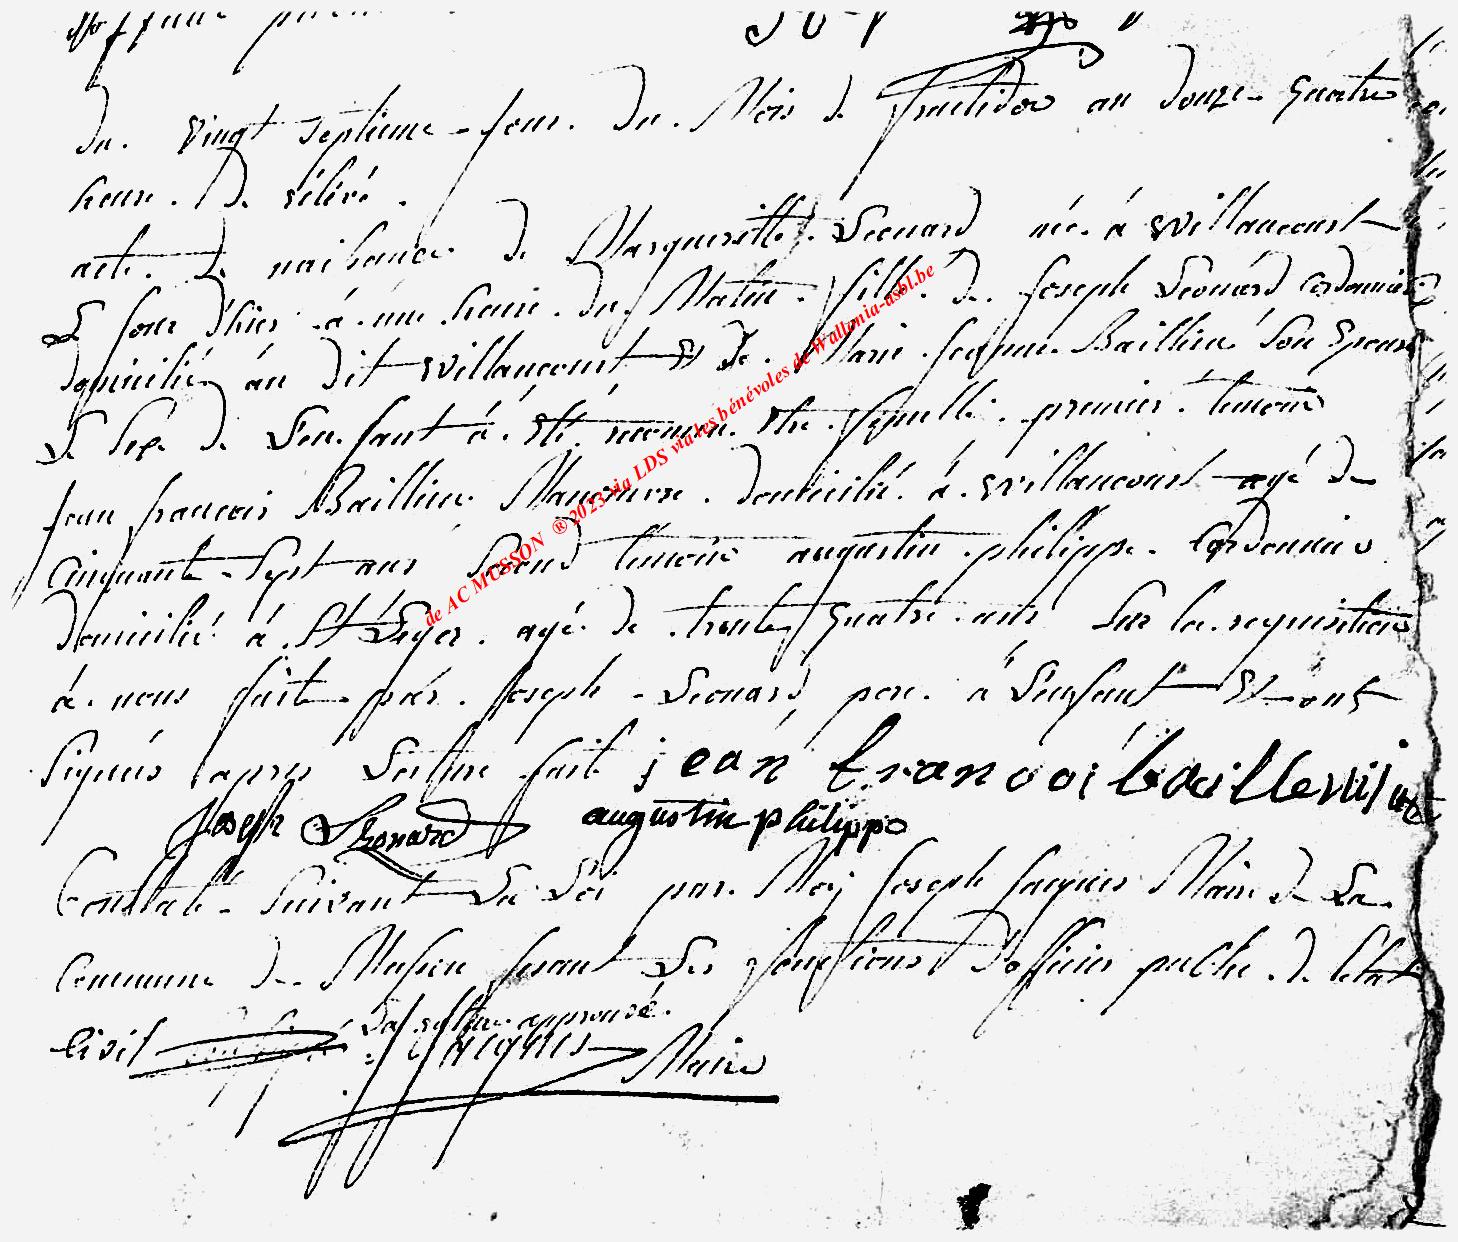 du. vingt septieme jour. du. Mois d. fructidor an douze quatre
heure. de rélevé.
acte. de naissance de Margueritte. Leonard née. á Willancourt
Le jour d'hier á. une. heure. du Matin. fille. de. Joseph Leonard Cordonnier
domicilié au dit Willancourt Et de. Marie. Jeanne Baillieu Son Epouse
Le Sexe. de L'en.fant á. été. reconnu. Etre. femelle. premier. temoin
jean francois Baillieu Manœuvre. domicilié. á. Willancourt agé de
Cinquante Sept ans Second temoin augustin. philippe. Cordonnier
domicilié á St Leger. agé. de trente quatre. ans Sur la. requisition
á. nous faite. par. Joseph Leonard pere. á L'enfant Et ont
Signés apres Lecture fait jean francoi bailleuij
Joseph Leonard augustin philippe
Constaté Suivant La Loi par. Moj Joseph Jacques Maire de La
Commune de. Musson fesant Les fonctions d'officier public. de l'etat
Civil
La rature approuvé.
J J Jacques Maire
de AC MUSSON ® 2023 via LDS via les bénévoles de Wallonia-asbl.be